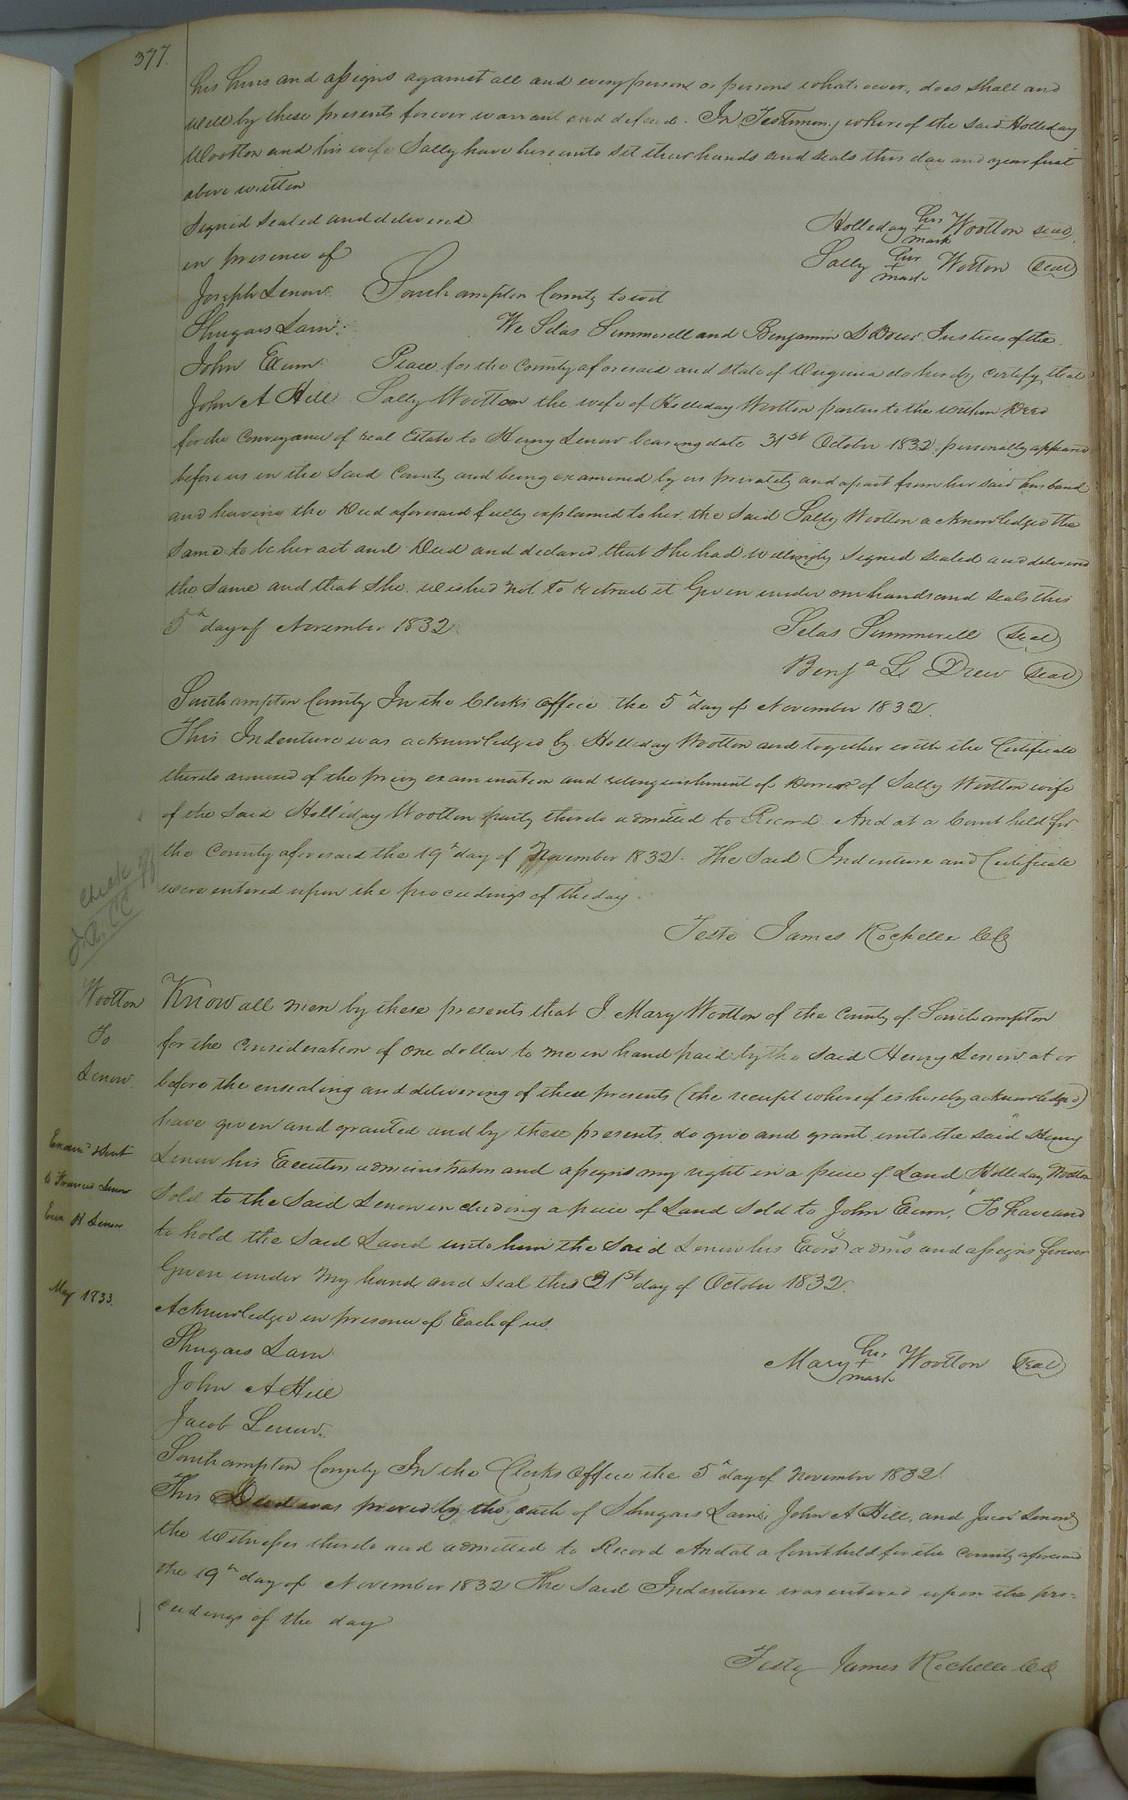 377.
his heirs and assigns against all and every person or persons whatsoever, does shall and
will by these presents forever warrant and defend. In Testimony whereof the said Holleday
Wootton and his wife Sally have hereunto set their hands and seals this day and year first
above written
Signed sealed and delivered
in presence of
Holleday his + mark Wootton seal
Sally her + mark Wotton seal
Joseph Lenow
Shugars Lain
John Exum
John A Hill
Southampton County to wit
We Silas Summerell and Benjamin L Drew Justices of the
Peace for the County aforesaid and state of Virginia do hereby certify that
Sally Wootton the wife of Holleday Wootton parties to the within Deed
for the Conveyance of real Estate to Henry Lenow bearing date 31st October 1832 personally appeared
before us in the said County and being examined by us privately and apart from her said husband
and having the Deed aforesaid fully explained to her, the said Sally Wootton acknowledged the
same to be her act and Deed and declared that she had willingly signed sealed and delivered
the same and that she wished not to retract it Given under our hands and seals this
5th day of November 1832
Silas Summerell seal
Benja L Drew seal
Southampton County In the Clerks office the 5th day of November 1832.
This Indenture was acknowledged by Holleday Wootton and together with the Certificate
thereto annexed of the privy examination and relinquishment of Dower of Sally Wootton wife
of the said Holliday Wootton party thereto admitted to Record And at a Court held for
the County aforesaid the 19th day of November 1832. The said Indenture and Certificate
were entered upon the proceedings of the day.
Teste James Rochelle CC
Wootton
To
Lenow
Know all men by these presents that I Mary Wootton of the County of Southampton
for the Consideration of one dollar to me in hand paid by the said Henry Lenow at or
before the ensealing and delivering of these presents (the receipt whereof is hereby acknowledged)
have given and granted and by these presents do give and grant unto the said Henry
Lenow his Executors administrators and assigns my right in a piece of Land Holleday Wootton
sold to the said Lenow including a piece of Land sold to John Exum, To have and
to hold the said Land unto him the said Lenow his Exors admrs and assigns forever
Given under my hand and seal this 31st day of October 1832.
Examd &
to Francis Lenow
Lenow
May 1833.
Acknowledged in presence of Each of us
Shugars Lain
John A Hill
Jacob Lenow
Mary her + mark Wootton seal
Southampton County In the Clerks office the 5th day of November 1832
This Deed was proved by the oath of Shugars Lain, John A Hill, and Jacob Lenow
the witnesses thereto and admitted to Record And at a Court held for the County aforesaid
the 19th day of November 1832 The said Indenture was entered upon the pro=
ceedings of the day
Teste James Rochelle CC